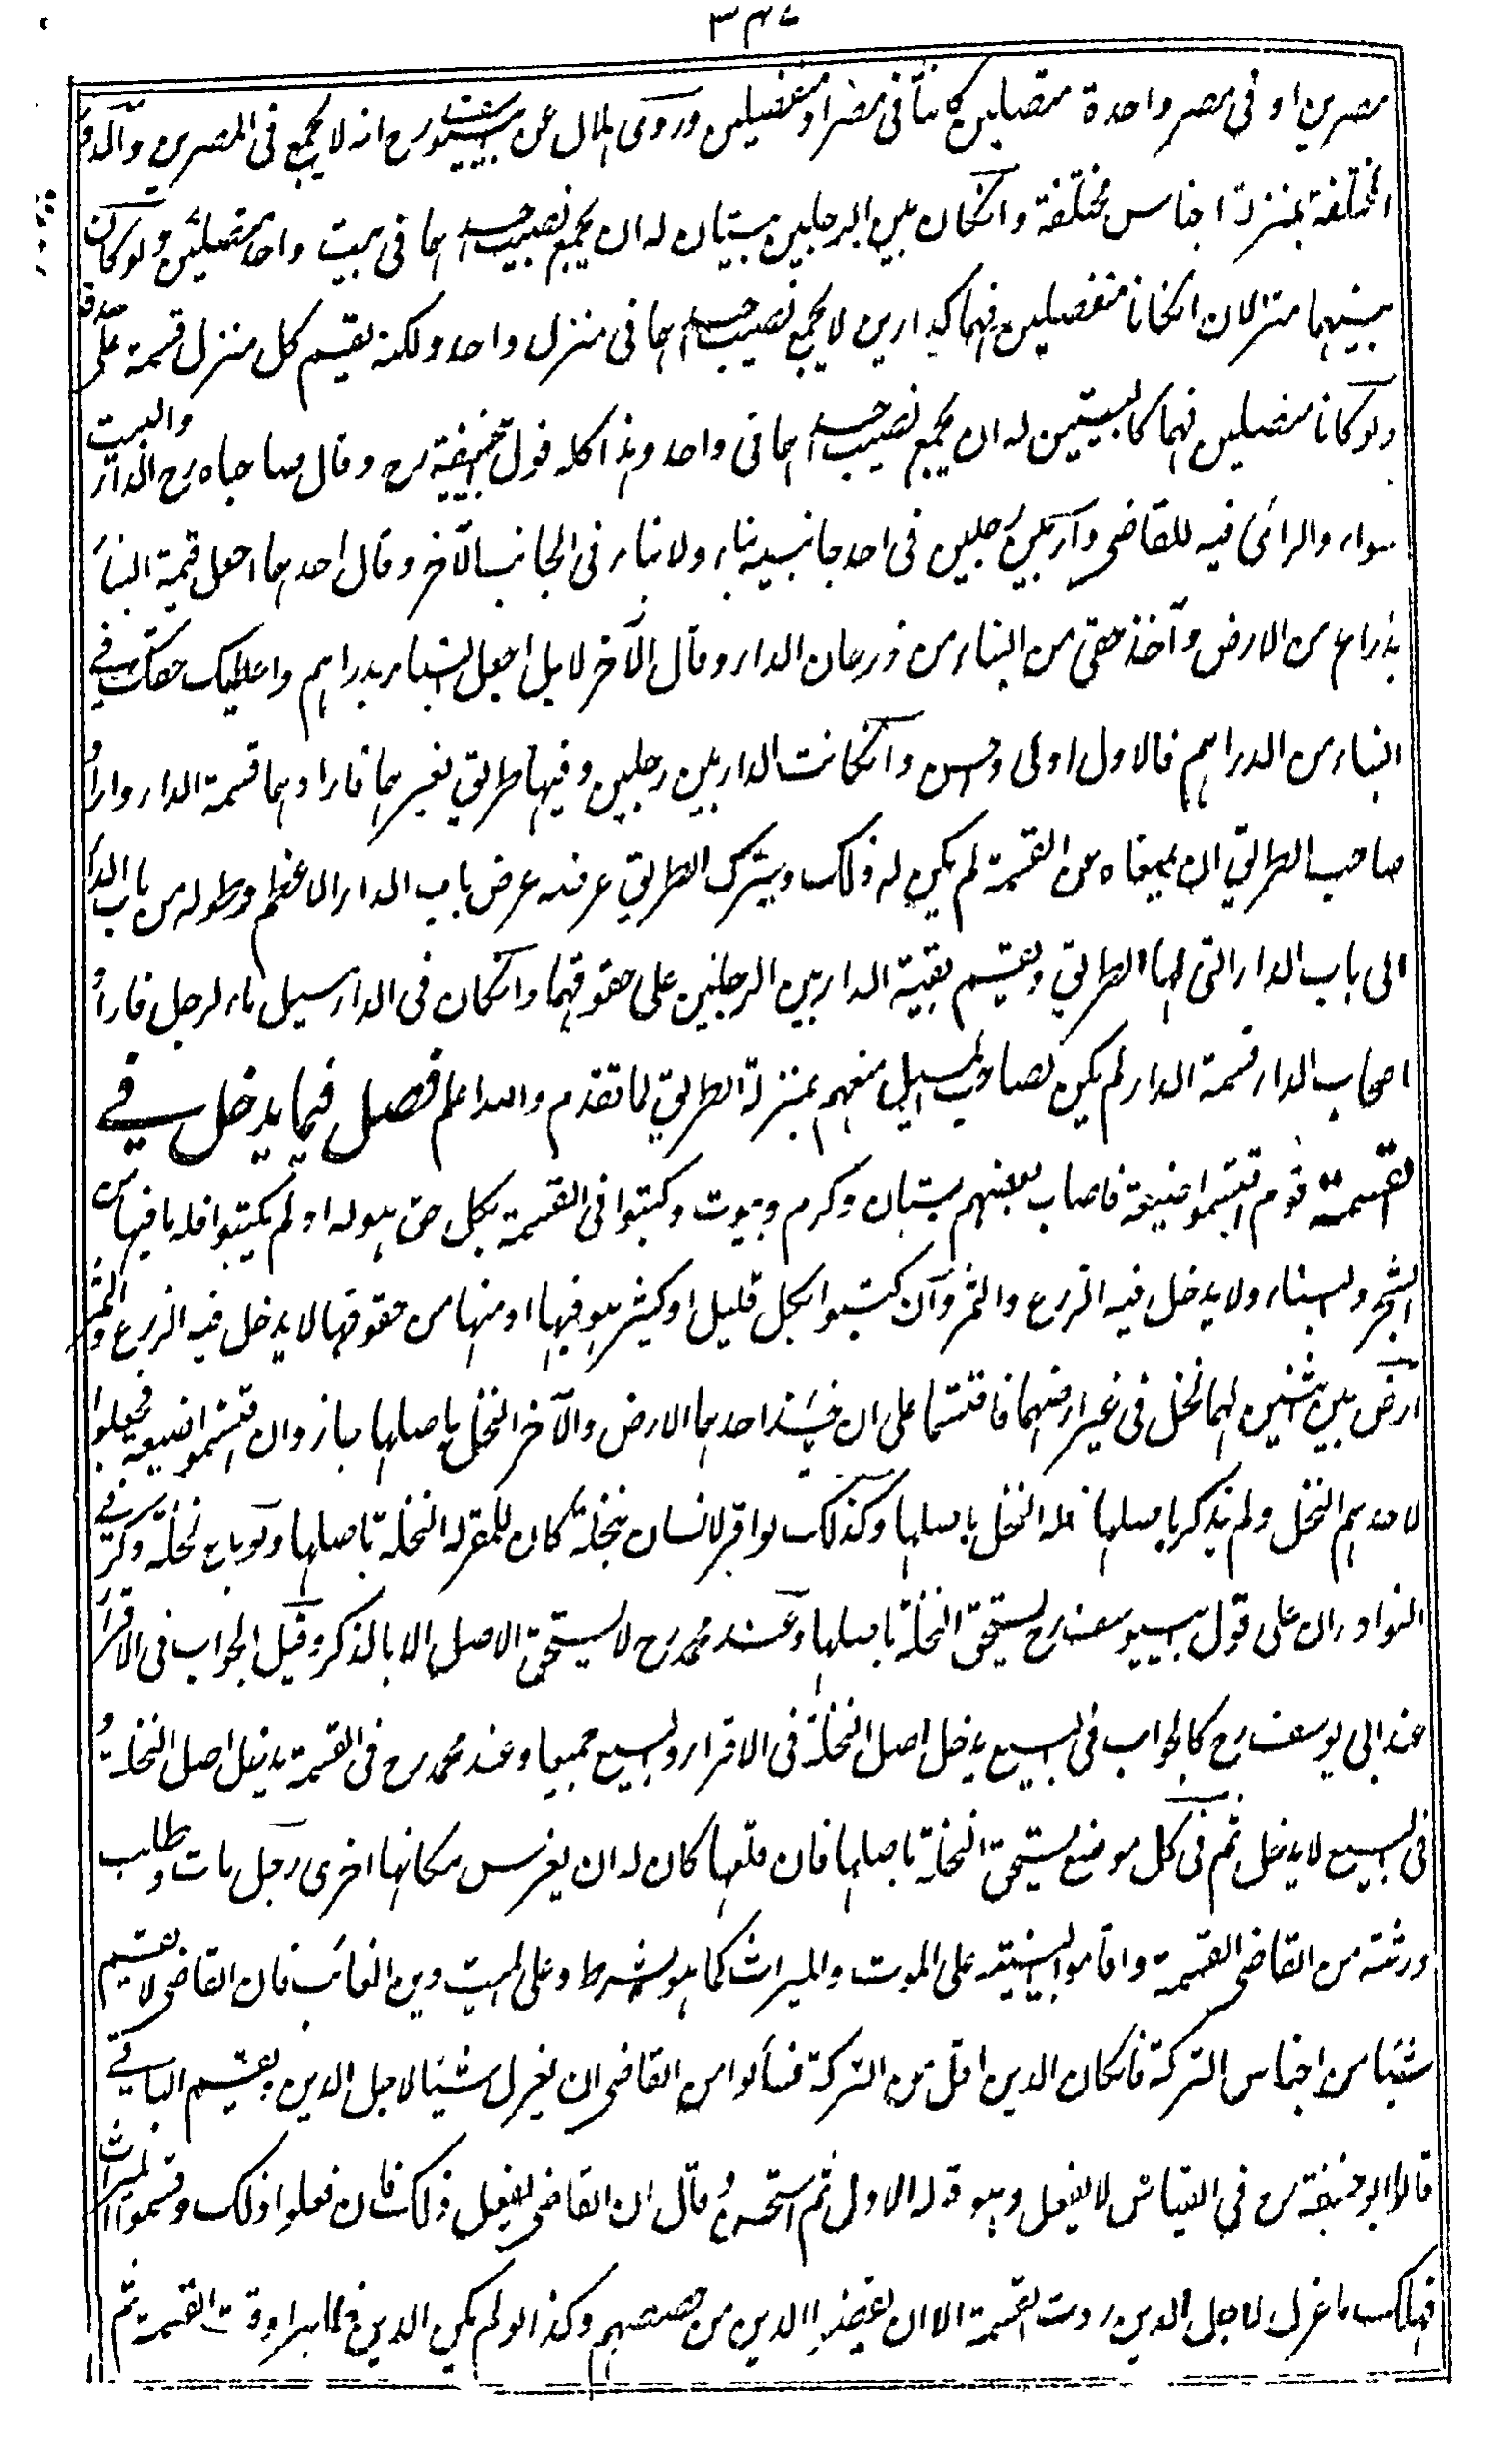 ٣٤٧
مصرين او فى مصر واحدة متصلين كانتا فى مصر او منفصلين وروى هلال عن ابى يوسف رح انه لا يجمع فى المصرين والدور
المختلفة بمنزلة اجناس مختلفة وانكان بين الرجلين بيتان له ان يجمع نصيب احدهما فى بيت واحد متصلين ولو كان
بينهما منزلان انكانا منفصلين فهما كدارين لا يجمع نصيب احدهما فى منزل واحد ولكنه يقسم كل منزل قسمة على حدة
ولو كانا متصلين فهما كالبيتين له ان يجمع نصيب احدهما فى واحد وهذا كله قول ابى حنيفة رح وقال صاحباه رح الدار والبيت
سواء والرأى فيه للقاضى دار بين رجلين فى احد جانبيه بناء ولا بناء فى الجانب الآخر وقال احدهما اجعل قيمة البناء
بذراع من الارض وآخذ حقى من البناء من ذرعان الدار وقال الآخر لا بل اجعل البناء بدراهم واعطيك حقك فى
البناء من الدراهم فالاول اولى وحسن وانكانت الدار بين رجلين وفيها طريق لغيرهما فارادهما قسمة الدار واراد
صاحب الطريق ان يمنعاه عن القسمة لم يكن له ذلك ويترك الطريق عرضه عرض باب الدار الاعظم وطوله من باب الدار
الى باب الدار التى لها الطريق ويقسم بقية الدار بين الرجلين على حقوقهما وانكان فى الدار مسيل ماء لرجل فاراد
اصحاب الدار قسمة الدار لم يكن لصاحب المسيل منعهم بمنزلة الطريق لما تقدم والله اعلم فصل فيما يدخل فى
القسمة قوم اقتسموا ضيعة فاصاب بعضهم بستان وكرم وبيوت وكتبوا فى القسمة بكل حق هو له او لم يكتبوا فله ما فيها من
الشجر والبناء ولا يدخل فيه الزرع والثمر وان كتبوا بكل قليل او كثير هو فيها او منها من حقوقها لا يدخل فيه الزرع والثمر
ارض بين اثنين لهما نخل فى غير ارضهما فاقتسما على ان يأخذ احدهما الارض والآخر النخل باصلها جاز وان اقتسموا ضيعة فجعلوا
لاحدهم النخل ولم يذكر باصلها فله النخل باصلها وكذلك لو اقر لانسان بنخلة كان للمقر له النخلة باصلها ولو باع نخلة ذكر فى
النوادر ان على قول ابى يوسف رح يستحق النخلة باصلها وعند محمد رح لا يستحق الاصل الا بالذكر وقيل الجواب فى الاقرار
عند ابى يوسف رح كالجواب فى البيع يدخل اصل النخلة فى الاقرار والبيع جميعا وعند محمد رح فى القسمة يدخل اصل النخلة و
فى البيع لا يدخل ثم فى كل موضع يستحق النخلة باصلها فان قلعها كان له ان يغرس مكانها اخرى رجل مات وطلب
ورثته من القاضى القسمة واقاموا البينة على الموت والميراث كما هو الشرط وعلى الميت دين الغائب فان القاضى لا يقسم
شيئا من اجناس التركة فانكان الدين اقل من التركة فسألوا من القاضى ان يعزل شيئا لاجل الدين ويقسم الباقى
قالوا ابو حنيفة رح فى القياس لا يفعل وهو قوله الاول ثم استحسن وقال ان القاضى يفعل ذلك فان فعلوا ذلك وقسموا الميراث
فهلك ما عزل لاجل الدين ردت القسمة الا ان يقضوا الدين من حصصهم وكذا لو لم يكن الدين ظاهرا وقت القسمة ثم